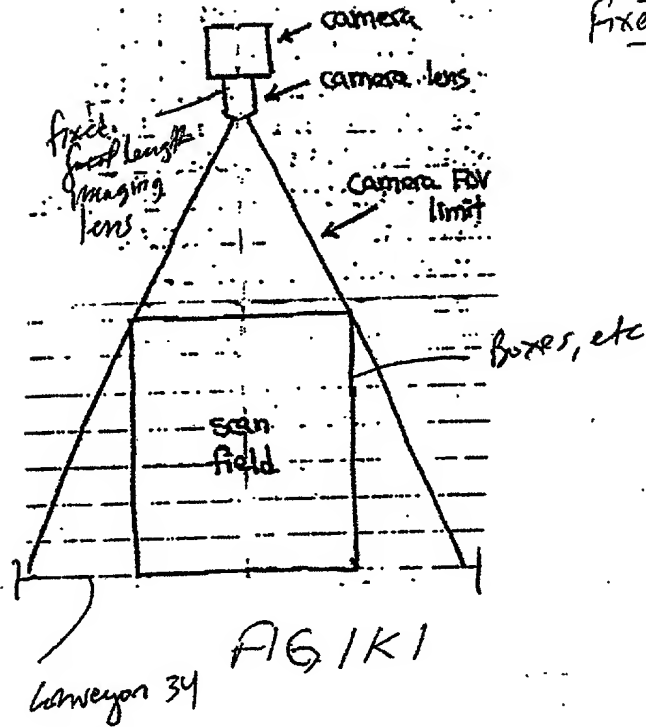 camera
Fixe
camera lens
fixed
focal length
imaging
lens
camera FOV
limit
Boxes, etc
scan
field
FIG 1K1
conveyor 34